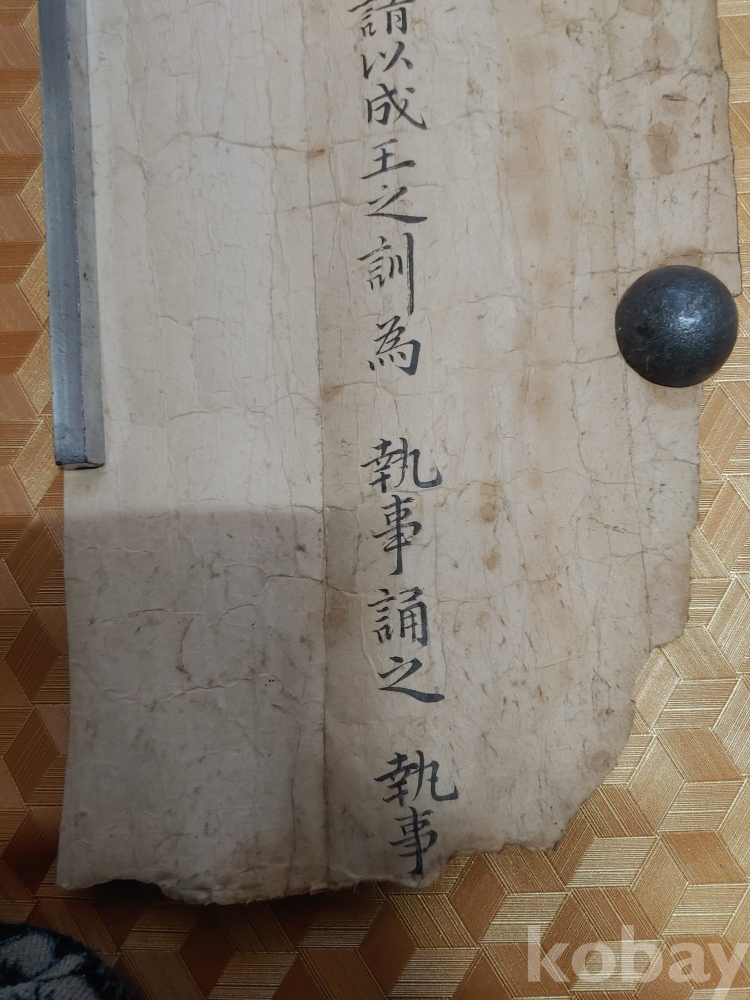 請以成王之訓為 執事誦之 執事
kobay